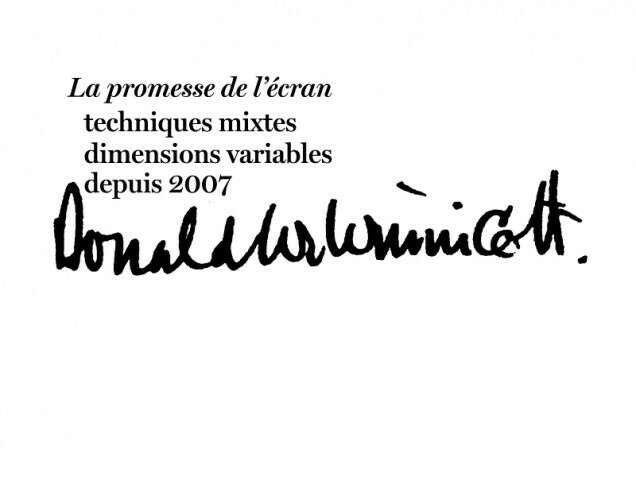 La promesse de l’écran
techniques mixtes
dimensions variables
depuis 2007
Donald W Winnicott.